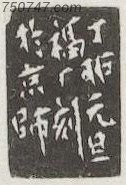 750747.com
丁卯元旦
福厂刻
於京師